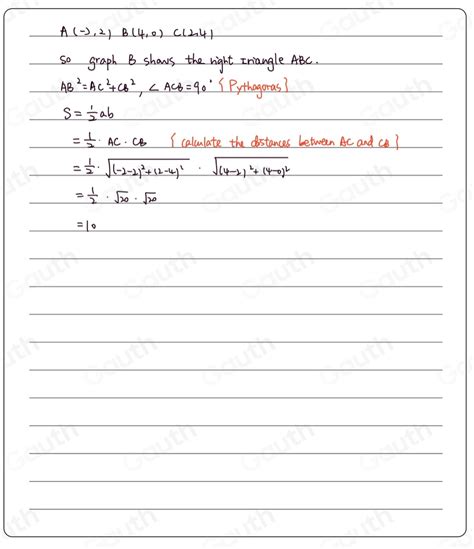 A (-2, 2) B (4, 0) C (2, 4)
So graph B shows the right triangle ABC.
AB² = AC² + CB², ∠ACB = 90° {Pythagoras}
S = ½ab
= ½ · AC · CB {calculate the distances between AC and CB}
= ½ · √((-2-2)² + (2-4)²) · √((4-2)² + (4-0)²)
= ½ · √20 · √20
= 10
Gauth